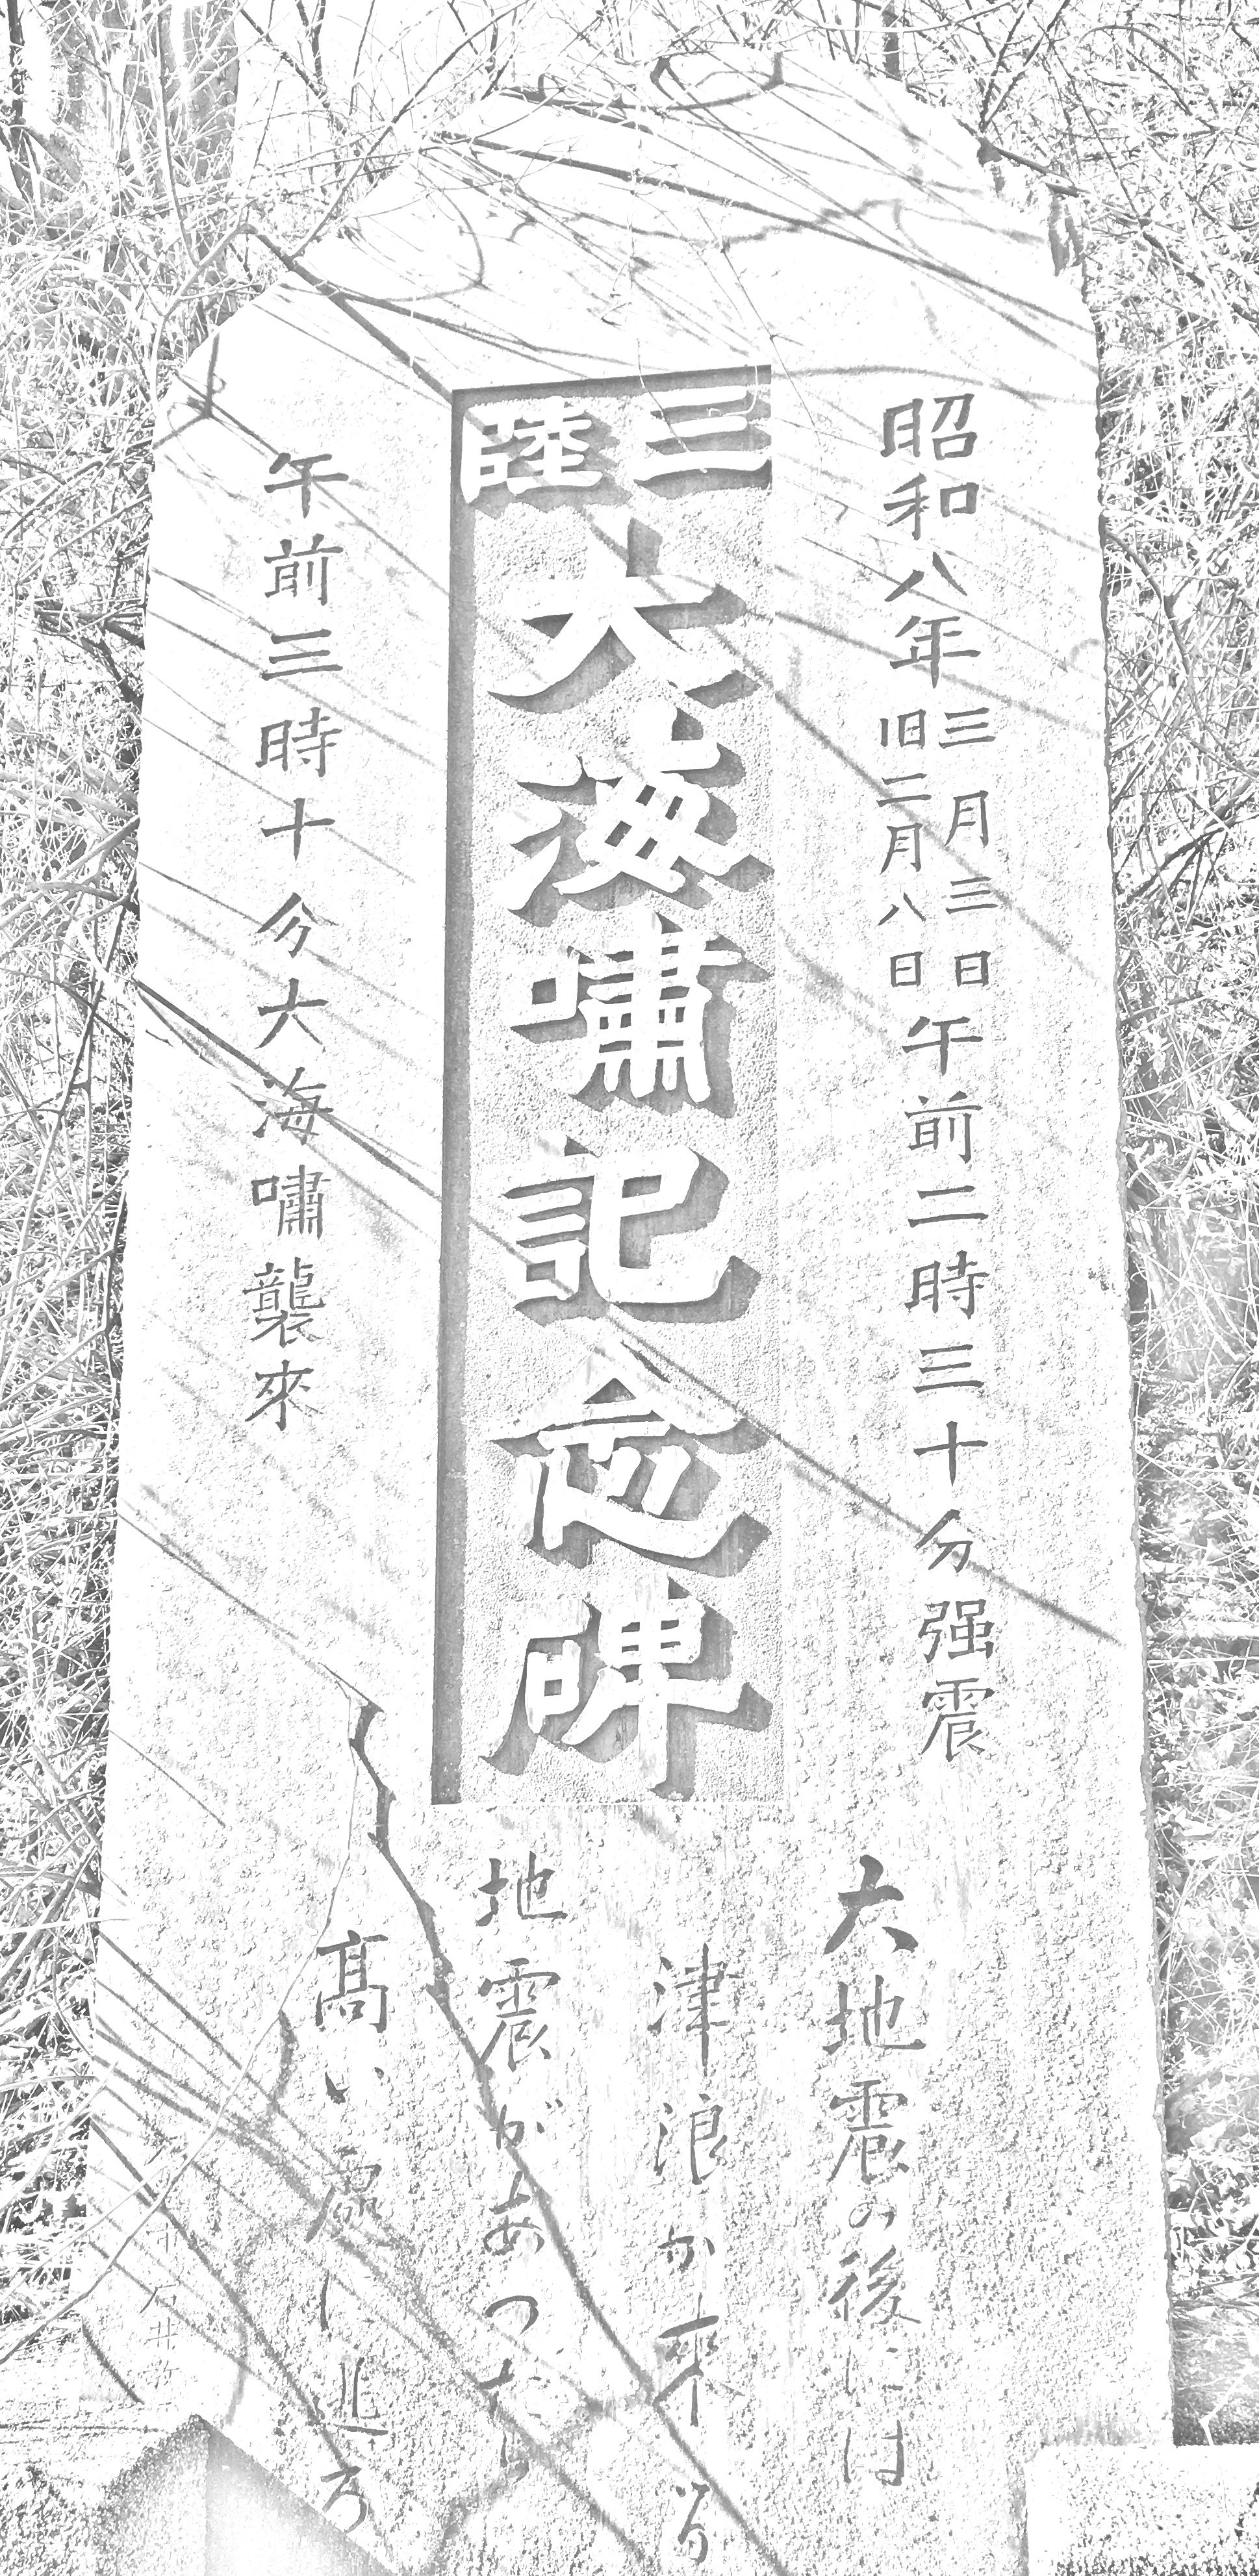 昭和八年三月三日旧二月八日午前二時三十分强震
三陸
大海嘯記念碑
午前三時十分大海嘯襲來
大地震の後には
津浪が來る
地震があつたら
髙い處に逃ろ